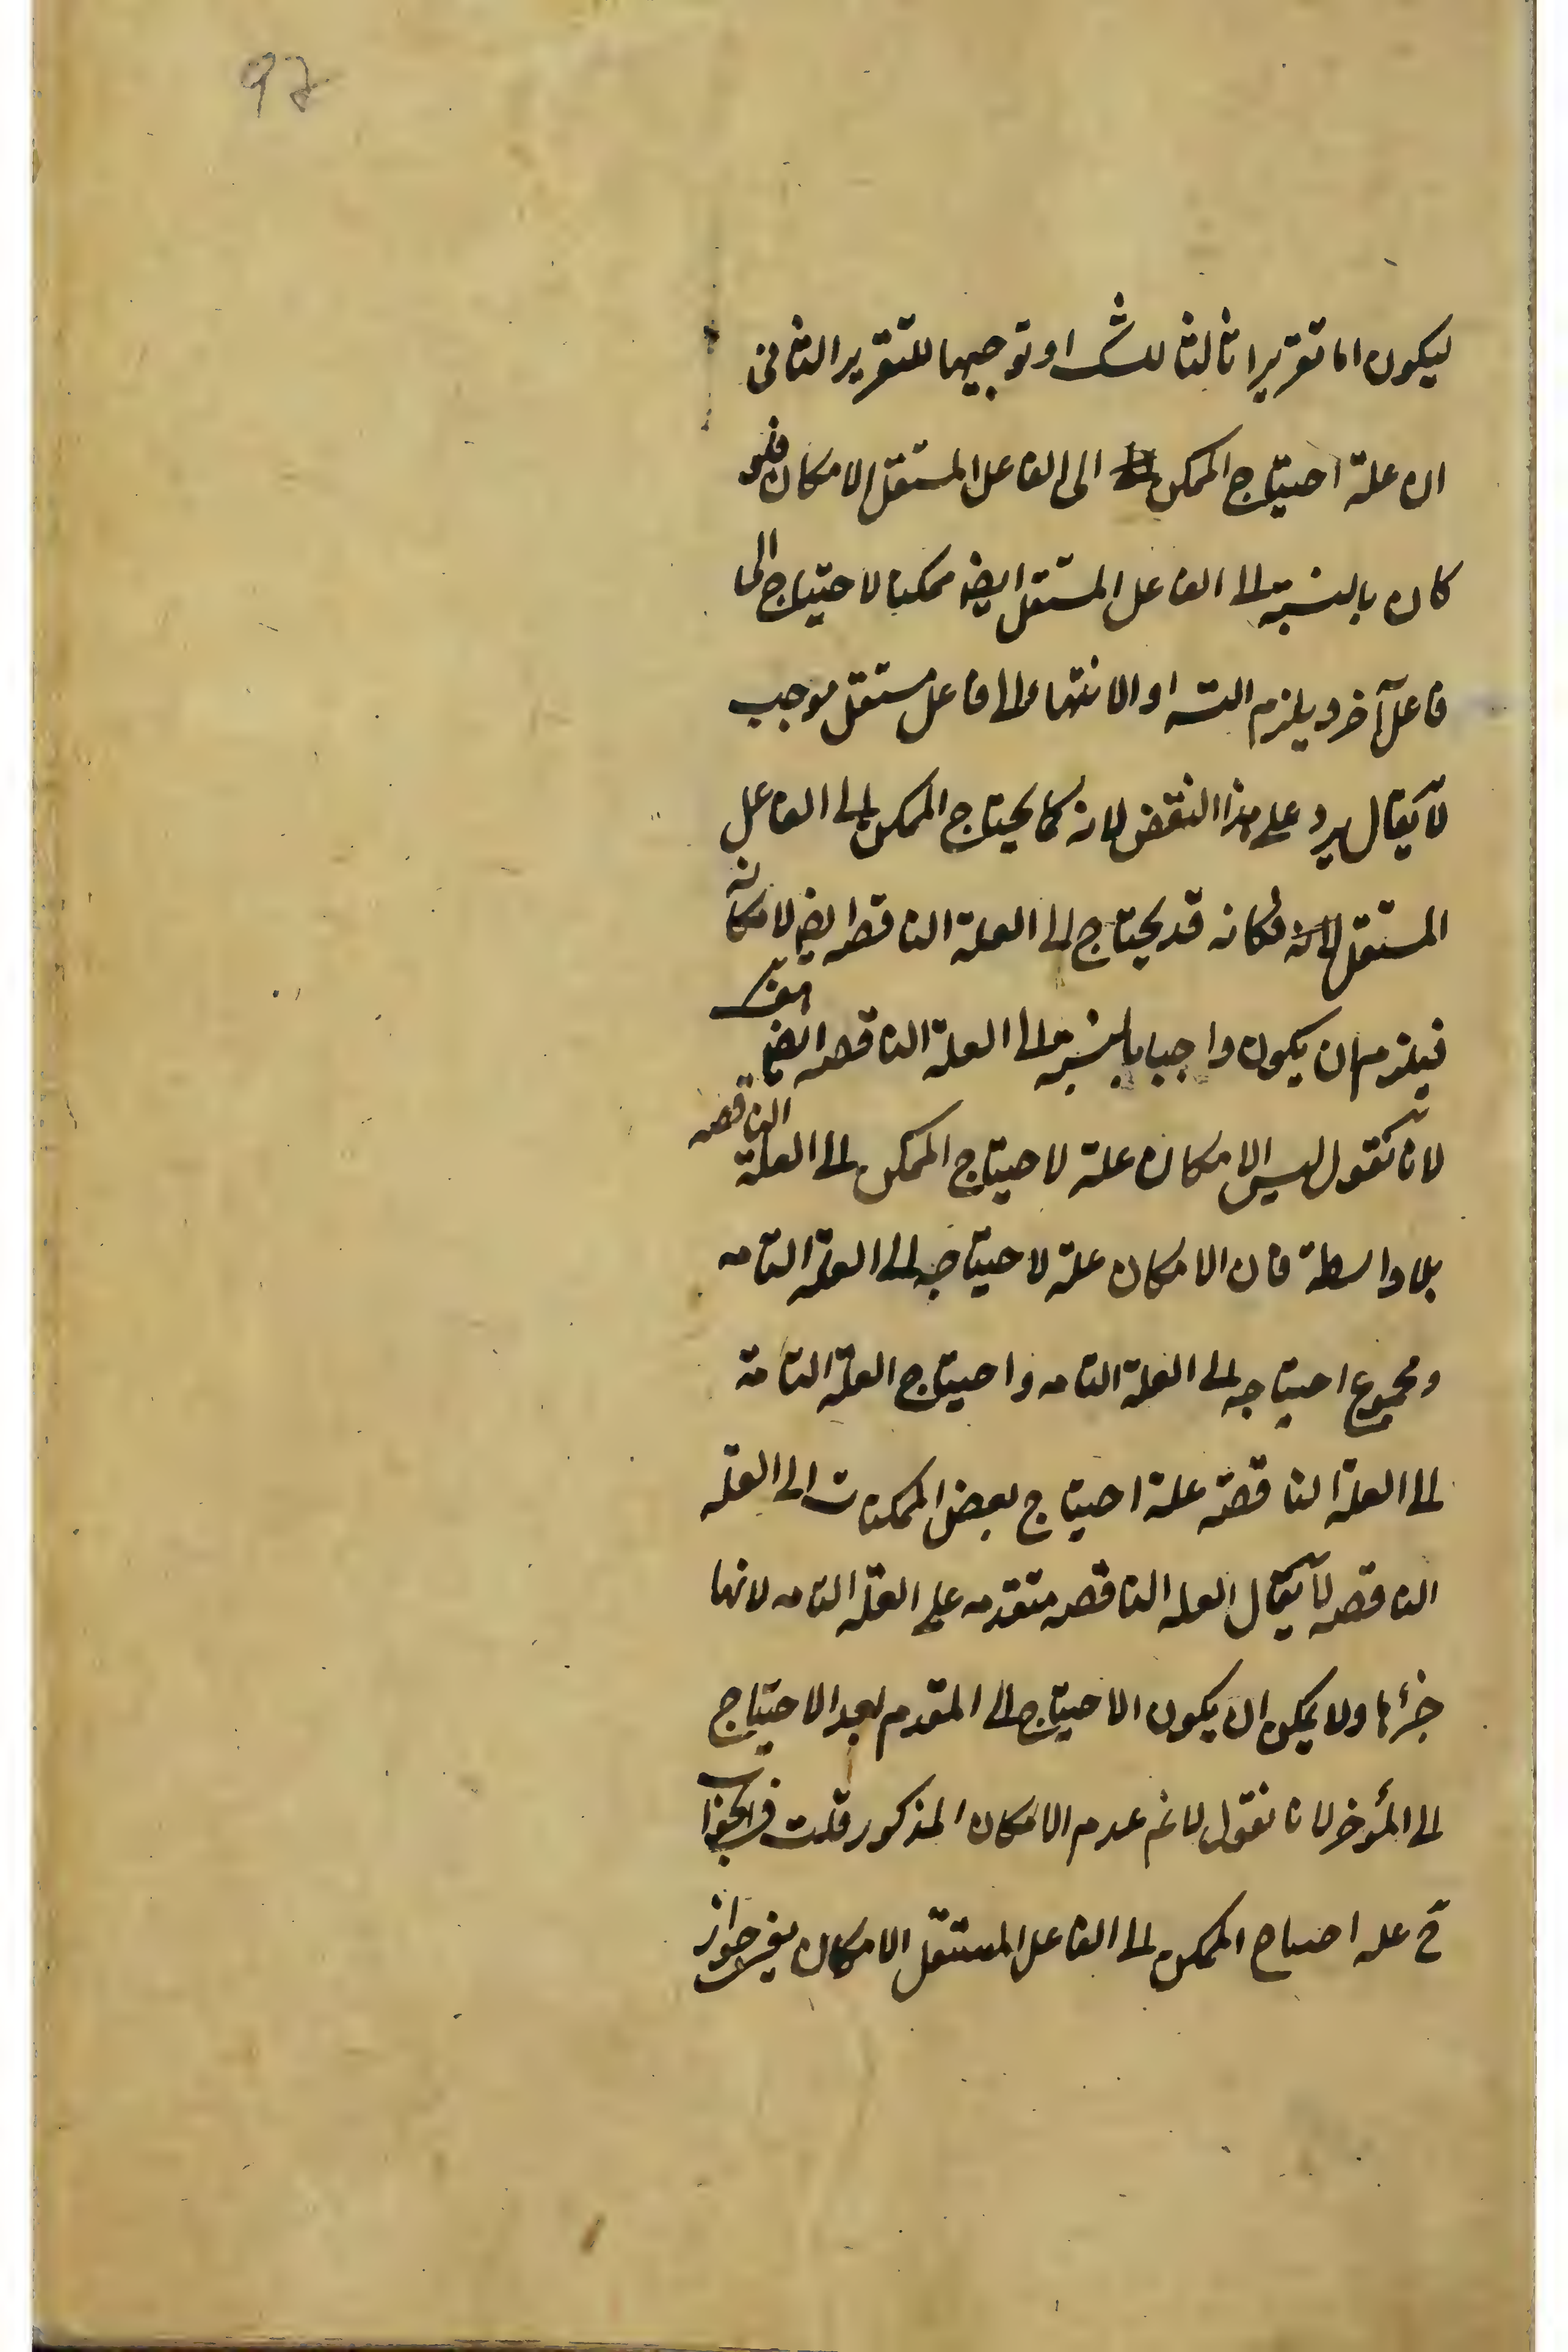 97
ليكون اما تقريرا ثالثا للش او توجيها للتقرير الثانى
ان علة احتياج الممكن الى الفاعل المستقل الامكان فلو
كان بالنسبة الى الفاعل المستقل ايضا ممكنا لاحتياج الى
فاعل آخر ويلزم التسـ او الانتهاء الى فاعل مستقل موجب
لا يقال يرد على هذا النقض لانه كما يحتاج الممكن الى الفاعل
المستقل لامكانه قد يحتاج الى العلة الناقصة ايضا لامكانه
فيلزم ان يكون واجبا بالنسبة الى العلة الناقصة ايضا
لانا نقول ليس الامكان علة لاحتياج الممكن الى العلة الناقصه
بلا واسطة فان الامكان علة لاحتياجه الى العلة التامه
ومجموع احتياجه الى العلة التامه واحتياج العلة التامة
الى العلة الناقصة علة احتياج بعض الممكنات الى العلة
الناقصه لا يقال العله الناقصه متقدمه على العلة التامه لانها
جزئها ولا يمكن ان يكون الاحتياج الى المقدم بعد الاحتياج
الى المؤخر لانا نقول لانم عدم الامكان المذكور قلت فى الجواب
ح عله احتياج الممكن الى الفاعل المستقل الامكان يفى جواز